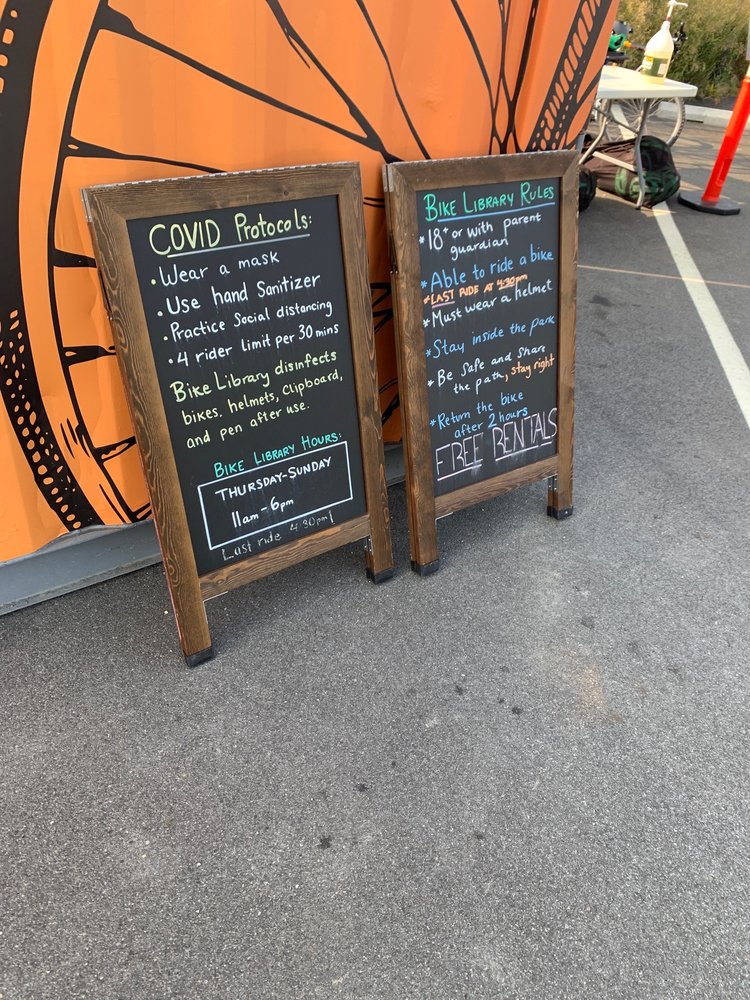 COVID Protocols:
• Wear a mask
• Use hand Sanitizer
• Practice Social distancing
• 4 rider limit per 30 mins
Bike Library disinfects
bikes, helmets, clipboard,
and pen after use.
BIKE LIBRARY HOURS:
THURSDAY-SUNDAY
11am-6pm
Last ride 4:30pm!
BIKE LIBRARY RULES
* 18+ or with parent
guardian
* Able to ride a bike
* LAST RIDE AT 4:30pm
* Must wear a helmet
* Stay inside the park
* Be Safe and Share
the path, stay right
* Return the bike
after 2 hours
FREE RENTALS